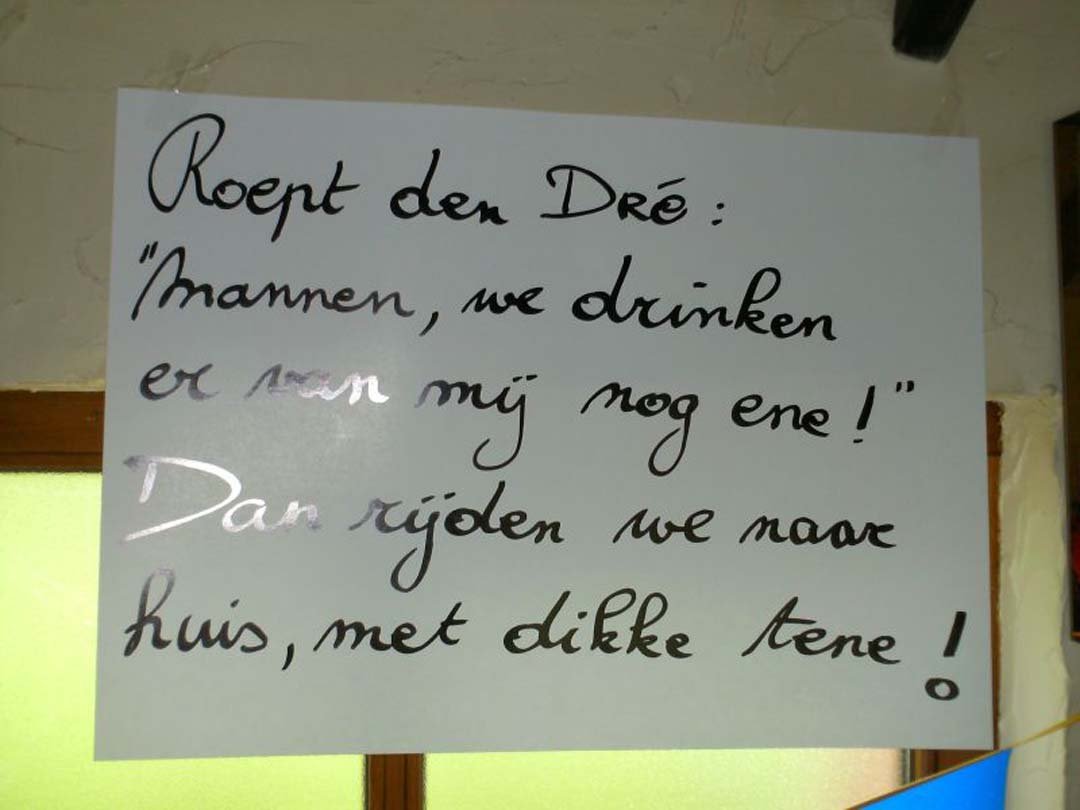 Roept den Dré :
"Mannen, we drinken
er van mij nog ene ! "
Dan rijden we naar
huis, met dikke tene !